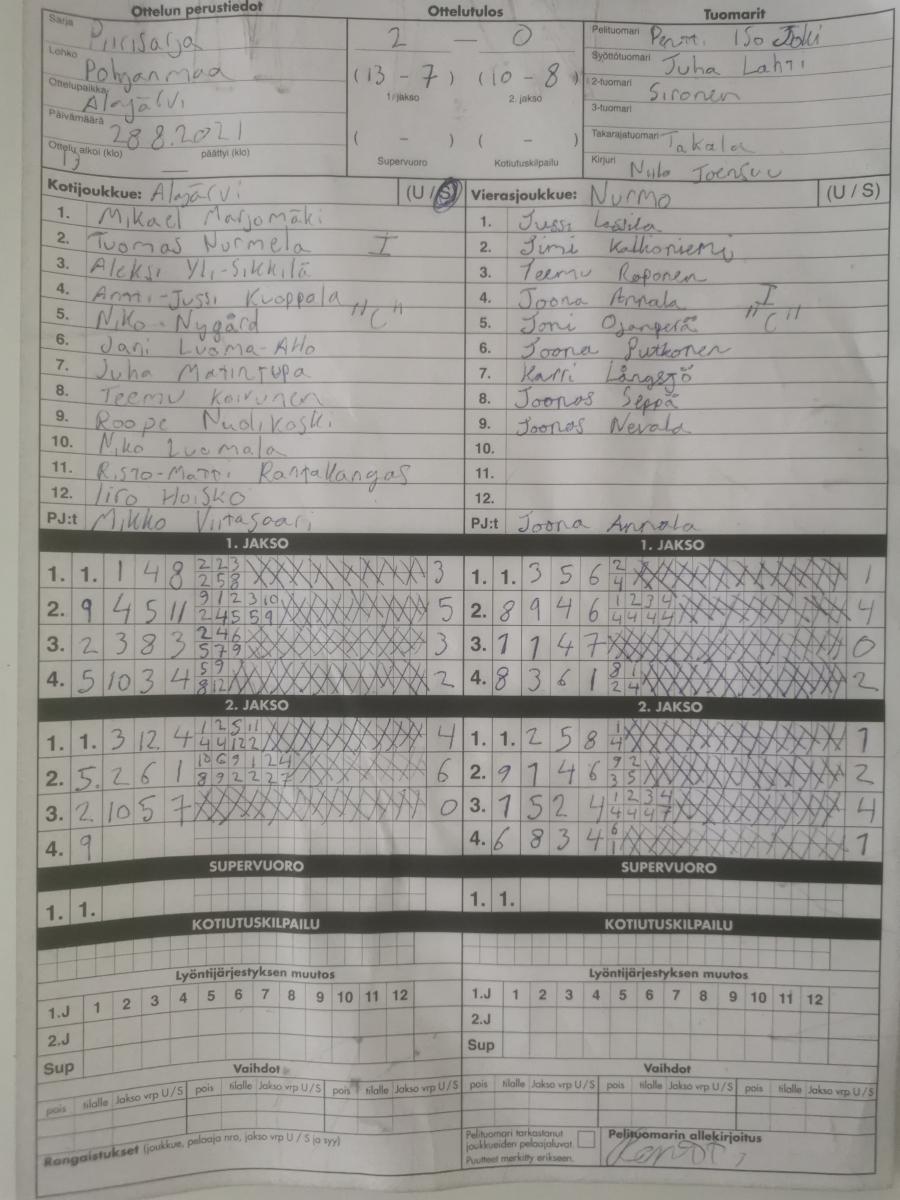 Ottelun perustiedot Ottelutulos Tuomarit
Sarja Piirisarja
Lohko Pohjanmaa
Ottelupaikka Alajärvi
Päivämäärä 28.8.2021
Ottelu alkoi (klo) 13 päättyi (klo) —
2 — 0
(13 - 7) (10 - 8)
1. jakso 2. jakso
( - ) ( - )
Supervuoro Kotiutuskilpailu
Pelituomari Iso Joki
Syöttötuomari Juha Lahti
2-tuomari Sironen
3-tuomari
Takarajatuomari Takala
Kirjuri Niilo Joensuu
Kotijoukkue: Alajärvi (U / S)
1. Mikael Marjomäki
2. Tuomas Nurmela I
3. Aleksi Yli-Sikkilä
4. Antti-Jussi Kuoppala
5. Niko Nygård "C"
6. Jani Luoma-Aho
7. Juha Matintupa
8. Teemu Koivunen
9. Roope Nuolikoski
10. Niko Luomala
11. Risto-Matti Rantakangas
12. Iiro Hoisko
PJ:t Mikko Viitasaari
Vierasjoukkue: Nurmo (U / S)
1. Jussi
2. Jimi Kalkoniemi
3. Teemu Roponen
4. Joona Annala I
5. Joni Ojanperä "C"
6. Joona Putkonen
7. Harri Långsjö
8. Joonas Seppä
9. Joonas Nevala
10.
11.
12.
PJ:t Joona Annala
1. JAKSO
1. 1. 1 4 8 2 2 3 3
2 5 8
2. 9 4 5 11 9 1 2 3 10 5
2 4 5 5 9
3. 2 3 8 3 2 4 6 3
5 7 9
4. 5 10 3 4 5 9 2
8 12
1. JAKSO
1. 1. 3 5 6 2 1
4
2. 8 9 4 6 1 2 3 4 4
4 4 4 4
3. 1 1 4 7 0
4. 8 3 6 1 8 1 2
2 4
2. JAKSO
1. 1. 3 12 4 1 2 5 11 4
4 4 12 2
2. 5. 2 6 1 10 6 9 1 2 4 6
8 9 2 2 2 7
3. 2 10 5 7 0
4. 9
2. JAKSO
1. 1. 2 5 8 1 1
4
2. 9 1 4 6 9 2 2
3 5
3. 1 5 2 4 1 2 3 4 4
4 4 4 7
4. 6 8 3 4 6 1
1
SUPERVUORO
1. 1.
SUPERVUORO
1. 1.
KOTIUTUSKILPAILU
KOTIUTUSKILPAILU
Lyöntijärjestyksen muutos
1.J 1 2 3 4 5 6 7 8 9 10 11 12
2.J
Sup
Lyöntijärjestyksen muutos
1.J 1 2 3 4 5 6 7 8 9 10 11 12
2.J
Sup
Vaihdot
pois tilalle Jakso vrp U / S pois tilalle Jakso vrp U / S pois tilalle Jakso vrp U / S
Vaihdot
pois tilalle Jakso vrp U / S pois tilalle Jakso vrp U / S pois tilalle Jakso vrp U / S
Rangaistukset (joukkue, pelaaja nro, jakso vrp U / S ja syy)
Pelituomari tarkastanut
joukkueiden pelaajaluvat.
Puutteet merkitty erikseen.
Pelituomarin allekirjoitus